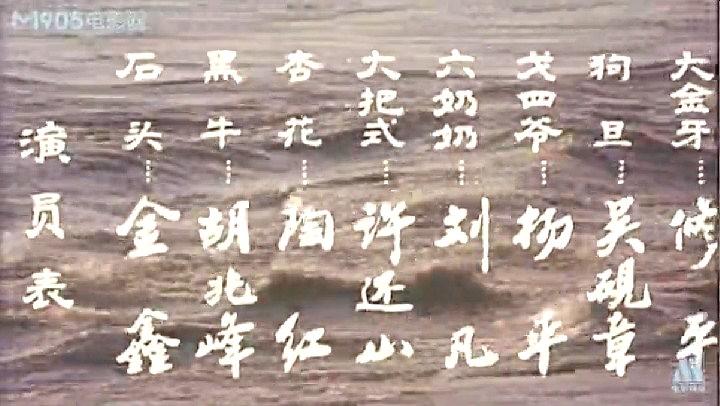 M1905电影网
演员表
石头……金鑫
黑牛……胡兆峰
杏花……陶红
大把式……许还山
六奶奶……刘凡
戈四爷……杨平
狗旦……吴砚章
大金牙……修平
电影频道